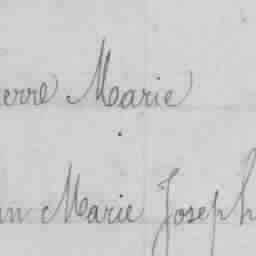 erre Marie
an Marie Joseph